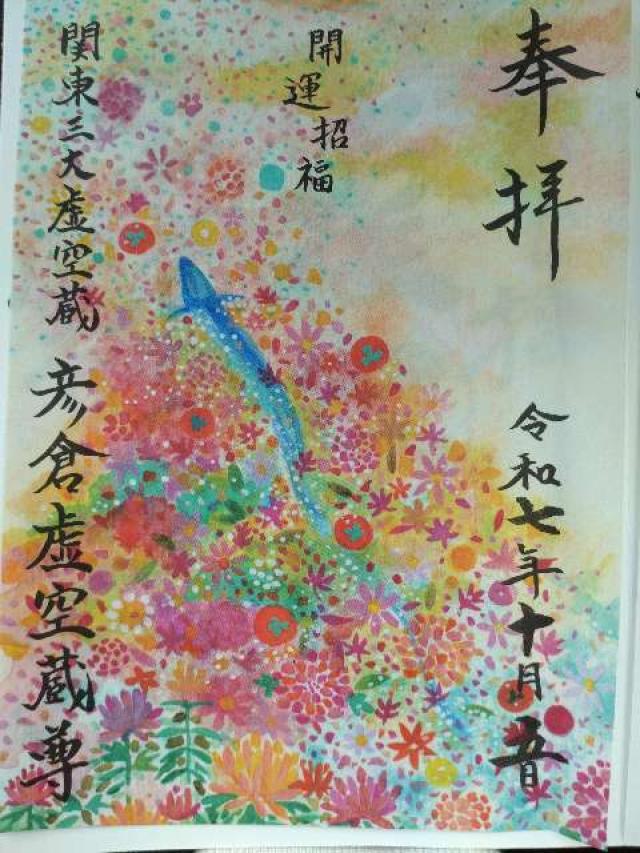 奉拝
令和七年十月五日
開運招福
関東三大虚空蔵
彦倉虚空蔵尊